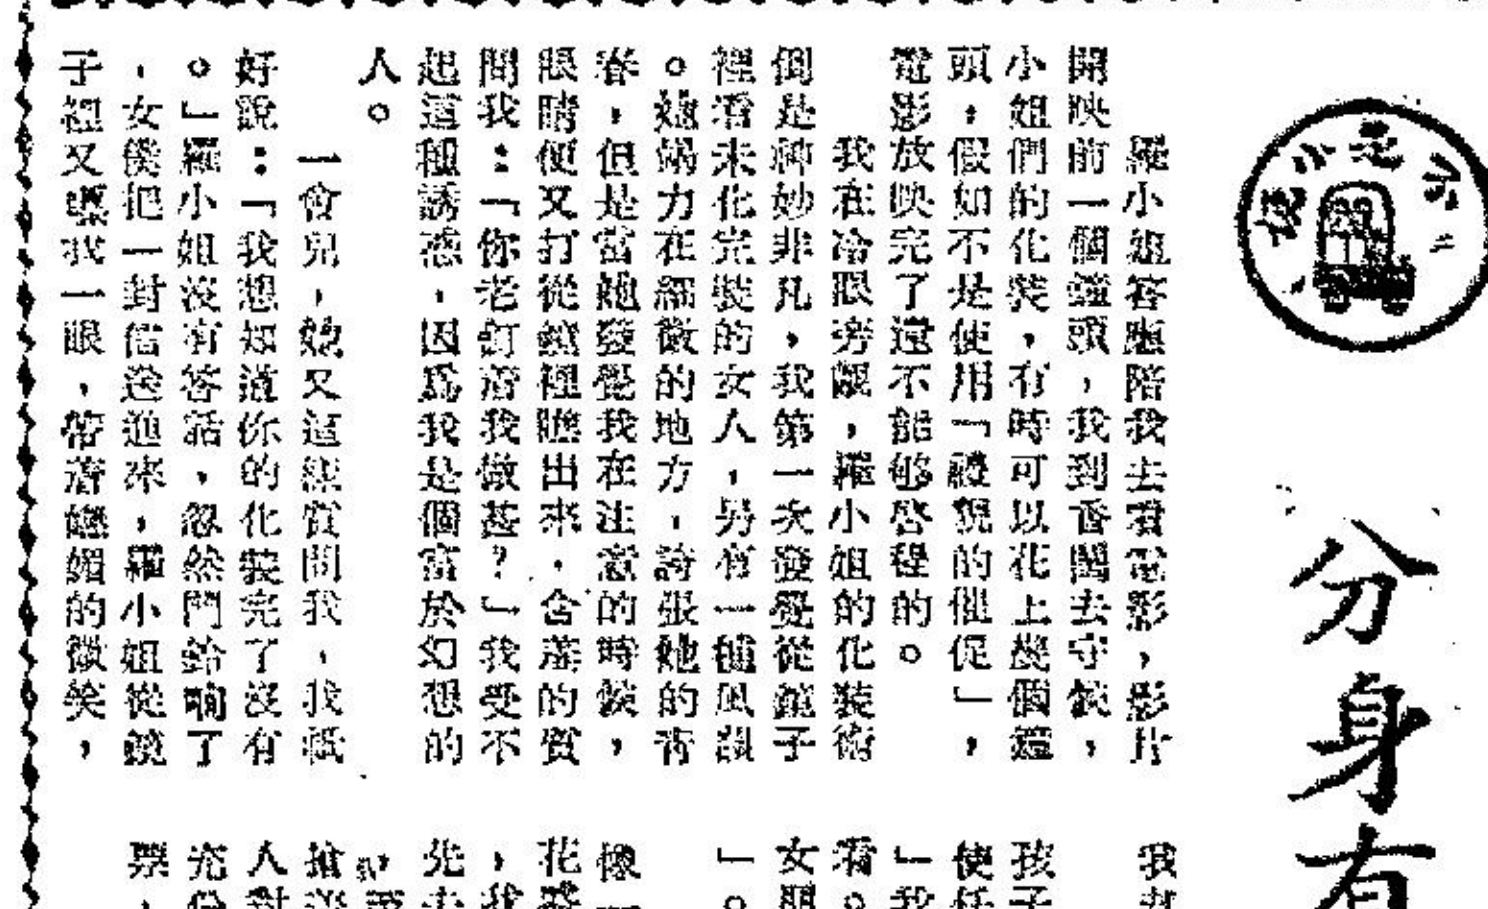 分身有
羅小姐答應陪我去看電影,影片
開映前一個鐘頭,我到香閨去守候,
小姐們的化裝,有時可以花上幾個鐘
頭,假如不是使用「禮貌的催促」,
電影放映完了還不能够啓程的。
我在冷眼旁觀,羅小姐的化裝術
倒是神妙非凡,我第一次發覺從鏡子
裡看未化完裝的女人,另有一種風韻
。她竭力在細微的地方,誇張她的青
春,但是當她發覺我在注意的時候,
眼睛便又打從鏡裡瞧出來,含蓄的質
問我:「你老釘着我做甚?」我受不
起這種誘惑,因爲我是個富於幻想的
人。
一會兒,她又這樣質問我,我祇
好說:「我想知道你的化裝完了沒有
。」羅小姐沒有答話,忽然門鈴响了
,女僕把一封信送進來,羅小姐從鏡
子裡又瞟我一眼,帶着嫵媚的微笑,
我
孩子
使任
」我
看。
女朋
」。
像一
花
,我
先去
搶
人對
充份
票,